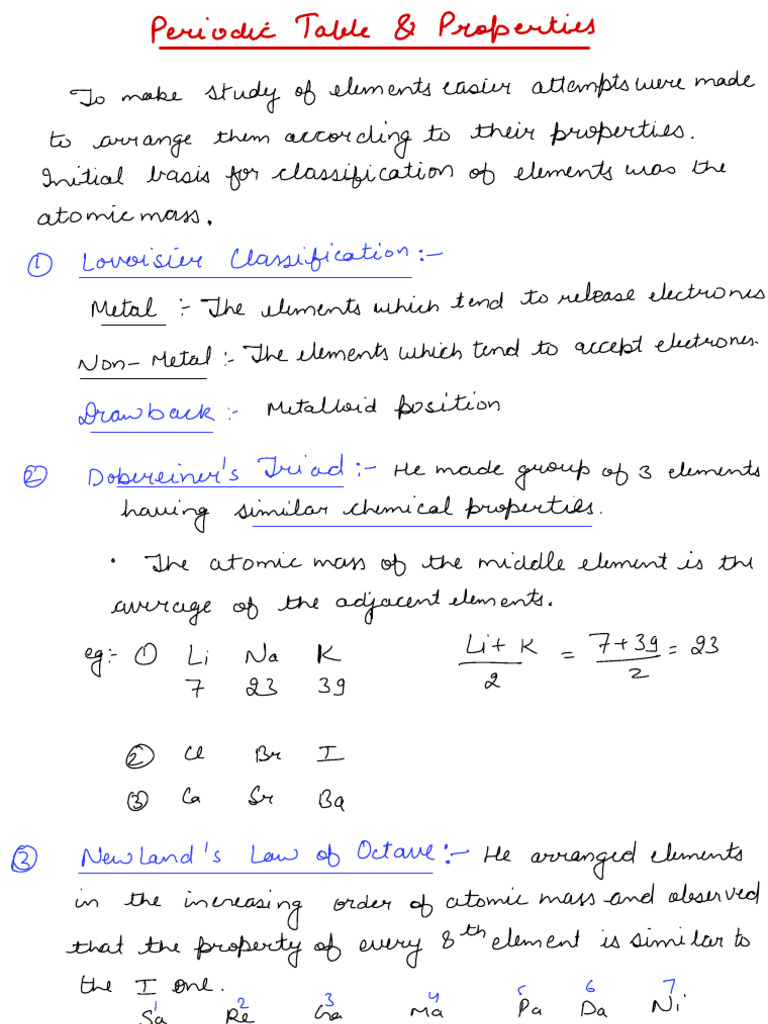 Periodic Table & Properties
To make study of elements easier attempts were made
to arrange them according to their properties.
Initial basis for classification of elements was the
atomic mass.
① Lovoisier Classification:-
Metal :- The elements which tend to release electrones
Non-Metal:- The elements which tend to accept electrones.
Drawback:- Metalloid position
② Dobereiner's Triad:- He made group of 3 elements
having similar chemical properties.
• The atomic mass of the middle element is the
average of the adjacent elements.
eg:- ① Li Na K Li + K / 2 = 7+39 / 2 = 23
7 23 39
② Cl Br I
③ Ca Sr Ba
③ Newland's Law of Octave:- He arranged elements
in the increasing order of atomic mass and observed
that the property of every 8th element is similar to
the I one.
1 2 3 4 5 6 7
Sa Re Ga Ma Pa Da Ni